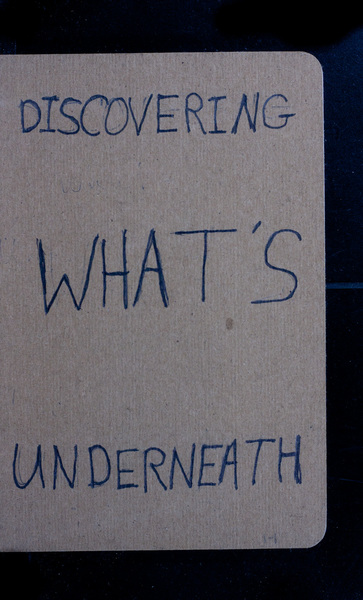 DISCOVERING
WHAT'S
UNDERNEATH